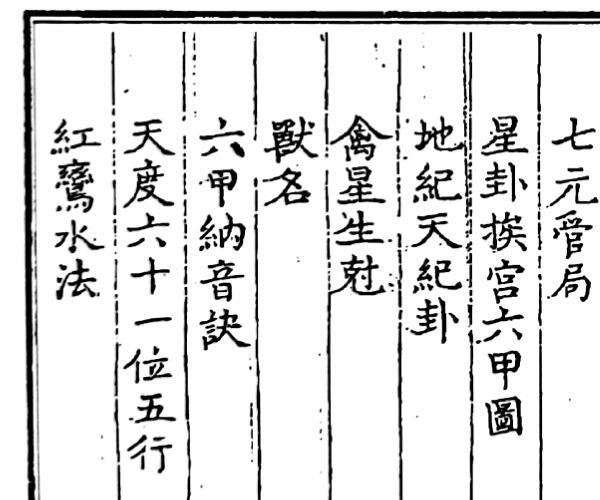 七元管局
星卦挨宫六甲圖
地紀天紀卦
禽星生尅
獸名
六甲納音訣
天度六十一位五行
紅鸞水法